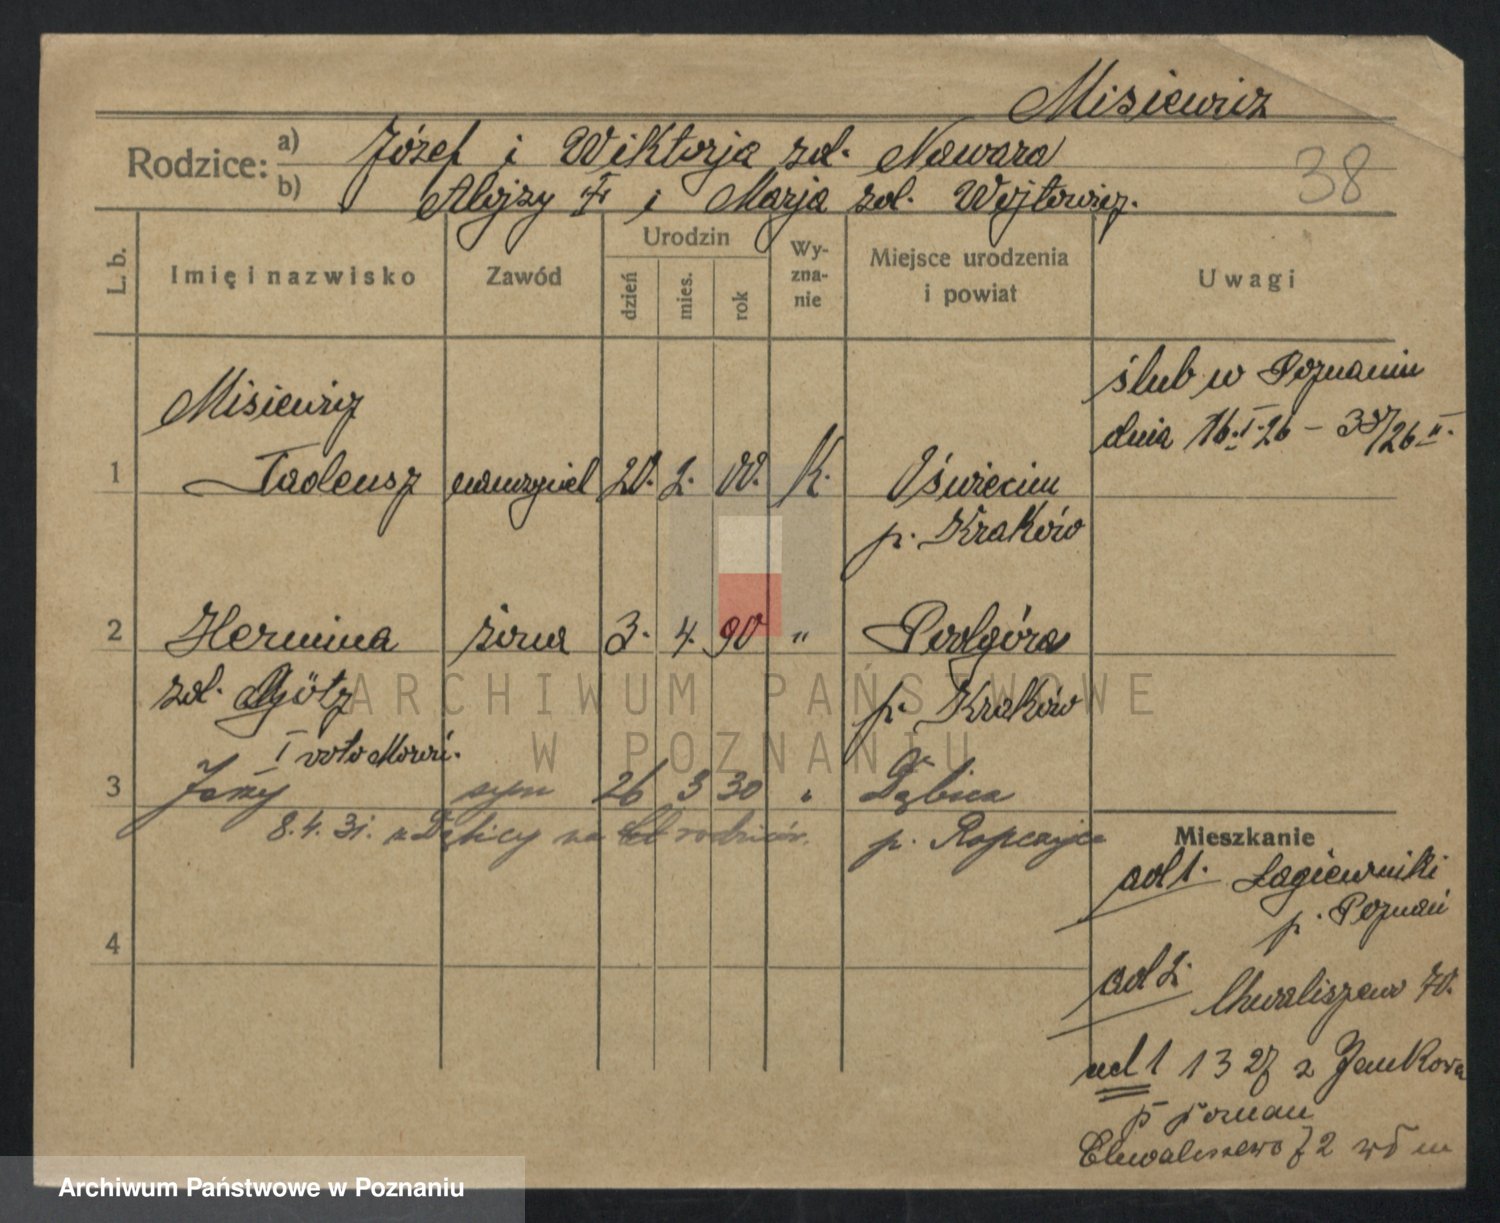 Misiewicz
Rodzice: a) Józef i Wiktorja zd. Nawara
b) Alojzy I i Marja zd. Wojtowicz.
38
L. b.
Imię i nazwisko
Zawód
Urodzin
dzień
mies.
rok
Wy-
zna-
nie
Miejsce urodzenia
i powiat
Uwagi
ślub w Poznaniu
dnia 16.I.26 - /26 II.
Misiewicz
1 Tadeusz nauczyciel 20. 2. 00. K. Oświęcim
p. Kraków
2 Hermina żona 3. 4. 90 " Podgórze
zd. Götz p. Kraków
I voto
3 Jerzy syn 26 3 30 " Dębica
8.4.31. z Dębicy na rodziców. p. Ropczyce
4
Mieszkanie
ad 1. Łagiewniki
p. Poznań
ad 2. Chwaliszewo 70.
ad 1 1 3 27 z Jankowa
p Poznań
Chwaliszewo 72 m
ARCHIWUM PAŃSTWOWE
W POZNANIU
Archiwum Państwowe w Poznaniu